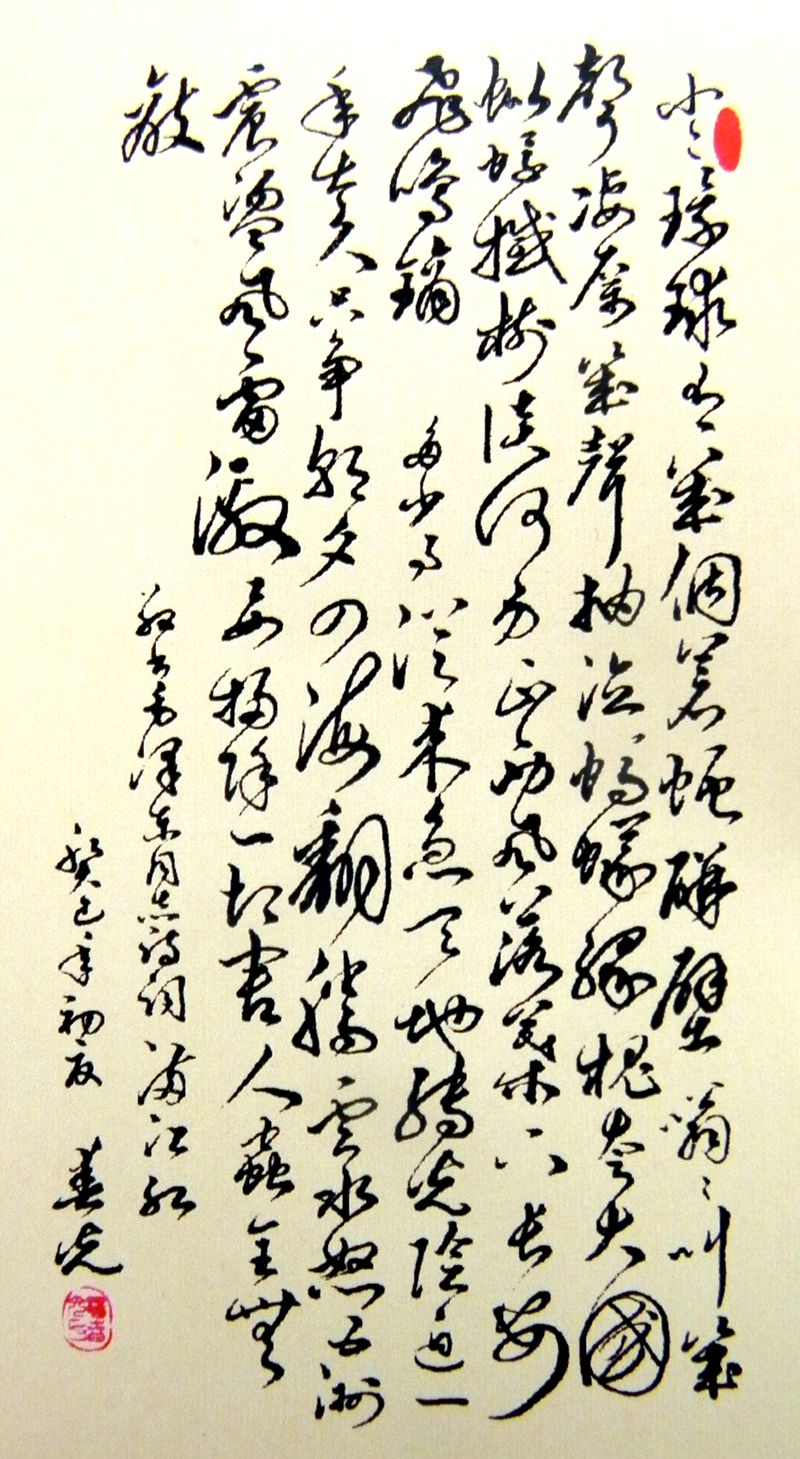 小小環球有幾個蒼蠅碰壁嗡嗡叫幾
聲凄厲幾聲抽泣螞蟻緣槐夸大國
蚍蜉撼樹談何易正西風落葉下長安
飛鳴鏑 多少事從來急天地轉光陰迫一
年太久只争朝夕四海翻騰雲水怒五洲
震盪風雷激要掃除一切害人蟲全無
敵
敬書毛澤東同志詩詞滿江紅
癸巳年初夏 春光